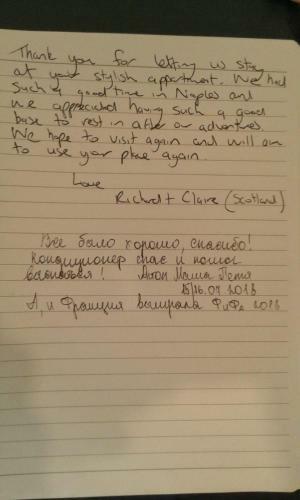 Thank you for letting us stay
at your stylish appartment. We had
such a good time in Naples and
we appreciated having such a good
base to rest in after our adventures.
We hope to visit again and will aim
to use your place again.
Love
Richard + Claire (Scotland)
Все было хорошо, спасибо!
Кондиционер спас и помог
Маша Петя
15/16.07 2018
А, и Франция выиграла ФиФа 2018